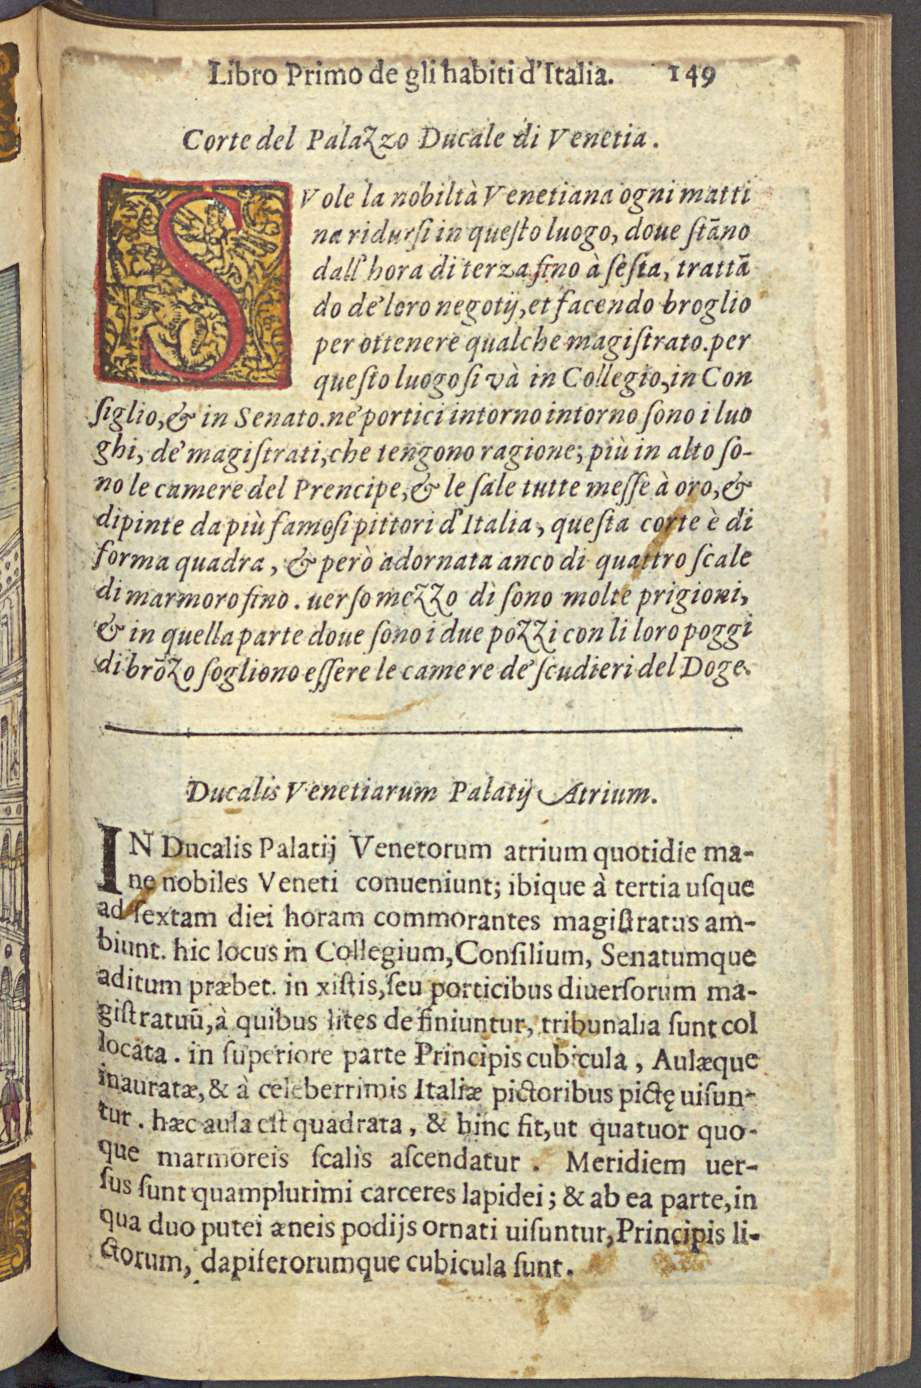 Libro Primo de gli habiti d'Italia. 149
Corte del Palazzo Ducale di Venetia.
SVole la nobiltà Venetiana ogni matti
na ridursi in questo luogo, doue stāno
dall'hora di terza fino à sesta, trattā
do de' loro negotij, et facendo broglio
per ottenere qualche magistrato. per
questo luogo si và in Collegio, in Con
siglio, & in Senato. ne' portici intorno intorno sono i luo
ghi, de' magistrati, che tengono ragione; più in alto so-
no le camere del Prencipe, & le sale tutte messe à oro, &
dipinte da più famosi pittori d'Italia, questa corte è di
forma quadra, & però adornata anco di quattro scale
di marmoro fino. uerso mezzo dì sono molte prigioni,
& in quella parte doue sono i due pozzi con li loro poggi
di brōzo sogliono essere le camere de' scudieri del Doge.
Ducalis Venetiarum Palatij Atrium.
IN Ducalis Palatij Venetorum atrium quotidie ma-
ne nobiles Veneti conueniunt; ibique à tertia usque
ad sextam diei horam commorantes magistratus am-
biunt. hic locus in Collegium, Consilium, Senatumque
aditum præbet. in xistis, seu porticibus diuersorum ma-
gistratuū, à quibus lites definiuntur, tribunalia sunt col
locata. in superiore parte Principis cubicula, Aulæque
inauratæ, & à celeberrimis Italiæ pictoribus pictę uisun-
tur. hæc aula est quadrata, & hinc fit, ut quatuor quo-
que marmoreis scalis ascendatur. Meridiem uer-
sus sunt quamplurimi carceres lapidei; & ab ea parte, in
qua duo putei æneis podijs ornati uisuntur, Principis li-
ctorum, dapiferorumque cubicula sunt.